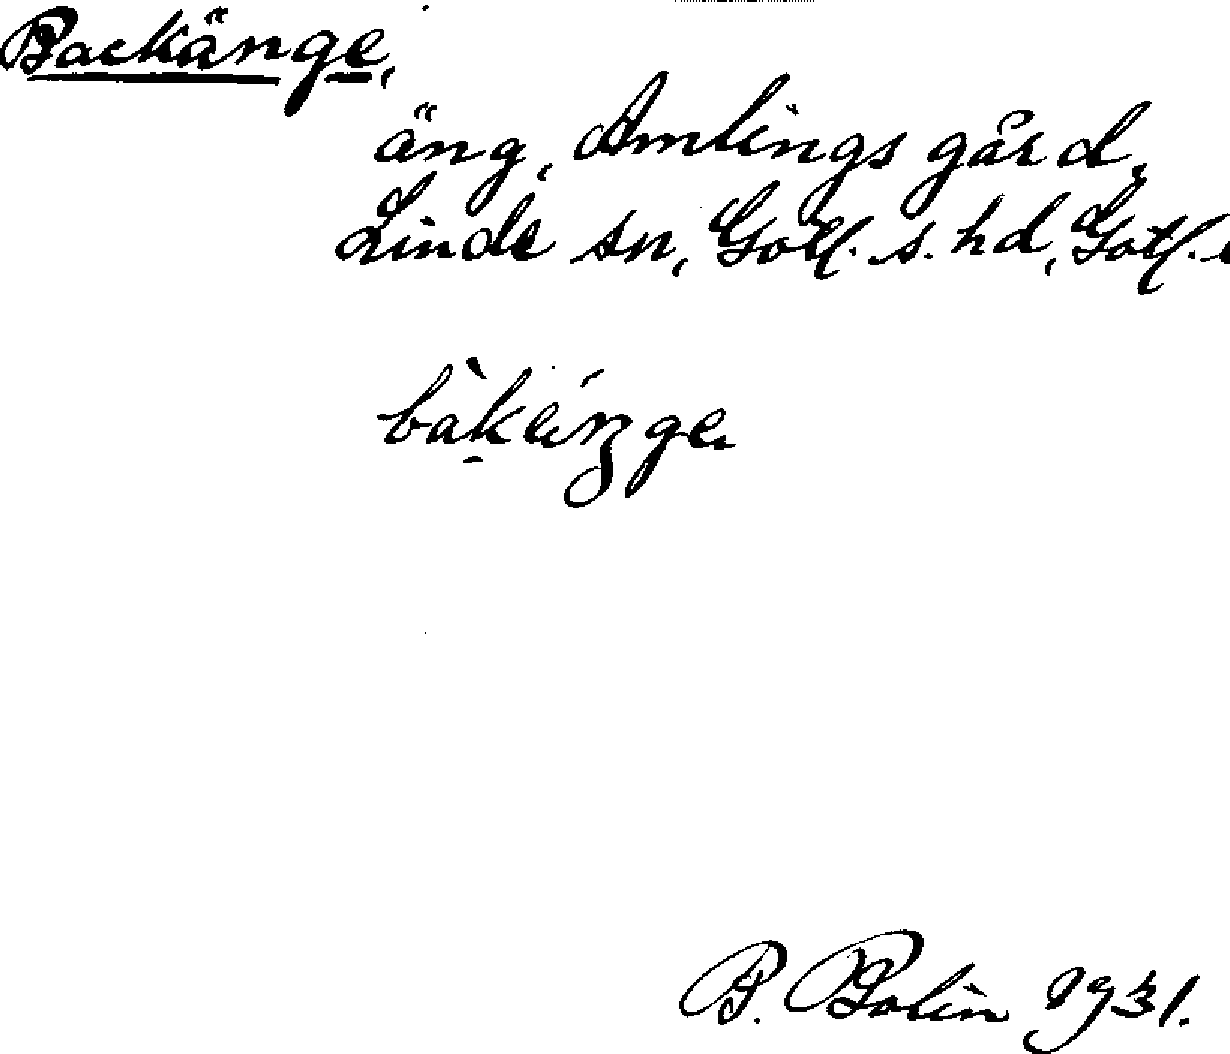 Backänge,
äng, Amlings gård,
Linde sn, Gotl. s. hd, Gotl. l
bàkäŋge
B. Bolin 1931.